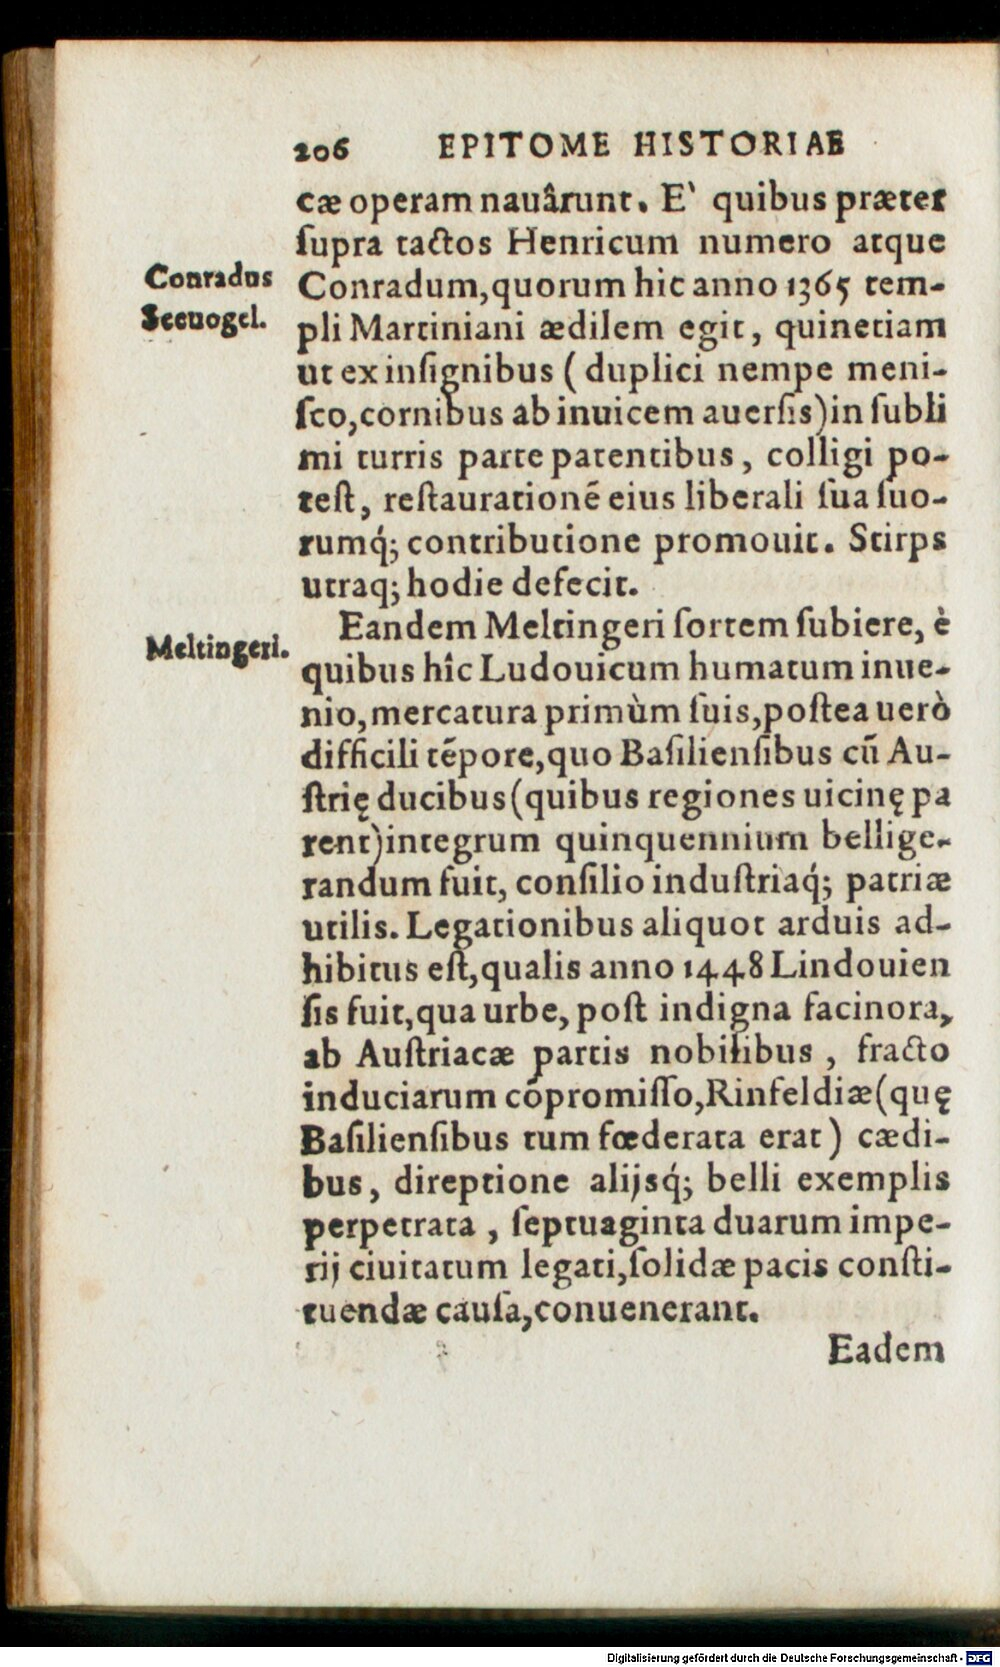 206 EPITOME HISTORIAE
cæ operam nauârunt. E` quibus præter
ſupra tactos Henricum numero atque
Conradus
Conradum, quorum hic anno 1365 tem-
Seeuogel.
pli Martiniani ædilem egit, quinetiam
ut ex inſignibus ( duplici nempe meni-
ſco, cornibus ab inuicem auerſis) in ſubli
mi turris parte patentibus, colligi po-
teſt, reſtaurationē eius liberali ſua ſuo-
rumq́; contributione promouit. Stirps
utraq; hodie defecit.
Eandem Meltingeri ſortem ſubiere, è
Meltingeri.
quibus hîc Ludouicum humatum inue-
nio, mercatura primùm ſuis, poſtea uerò
difficili tēpore, quo Baſilienſibus cū Au-
ſtrię ducibus (quibus regiones uicinę pa
rent) integrum quinquennium bellige-
randum fuit, conſilio induſtriaq́; patriæ
utilis. Legationibus aliquot arduis ad-
hibitus eſt, qualis anno 1448 Lindouien
ſis fuit, qua urbe, poſt indigna facinora,
ab Auſtriacæ partis nobilibus, fracto
induciarum cōpromiſſo, Rinfeldiæ (quę
Baſilienſibus tum fœderata erat) cædi-
bus, direptione alijsq́; belli exemplis
perpetrata, ſeptuaginta duarum impe-
rij ciuitatum legati, ſolidæ pacis conſti-
tuendæ cauſa, conuenerant.
Eadem
Digitalisierung gefördert durch die Deutsche Forschungsgemeinschaft - DFG